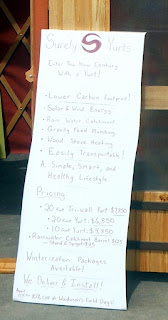 Surely Yurts
Enter the New Century
With a Yurt!
- Lower Carbon Footprint!
- Solar & Wind Energy
- Rain Water Catchment
- Gravity Feed Plumbing
- Wood Stove Heating
- Easily Transportable!
A Simple, Smart, and
Healthy Lifestyle
Pricing
• 20 foot Tri-Wall Yurt
• 20 foot Yurt: $6,350
• 10 foot Yurt: $
• Rainwater Catchment Barrel:
Stand & Spigot:
Winterization Packages
Available!
We Deliver & Install!